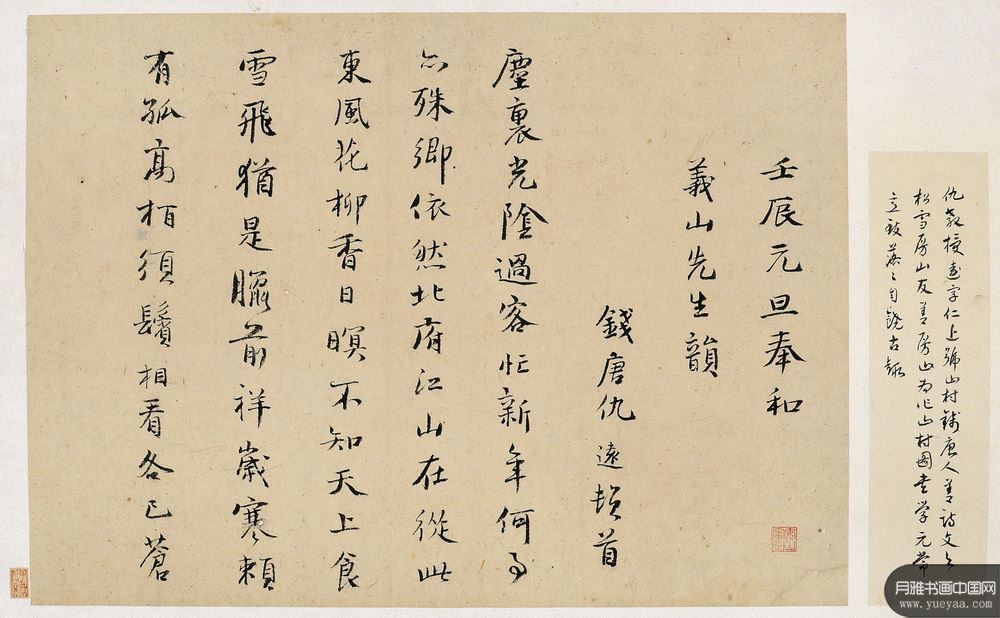 仇教授遠字仁上號山村錢唐人善詩文与
松雪房山友善房山为作山村圖書学元常
自饒古趣
壬辰元旦奉和
義山先生韻
錢唐仇遠頓首
塵裏光陰過客忙新年何事
亦殊鄉依然北府江山在從此
東風花柳香日暝不知天上食
雪飛猶是臘前祥歲寒賴
有孤高栢須鬢相看各已蒼
月雅书画中国网
www.yueyaa.com